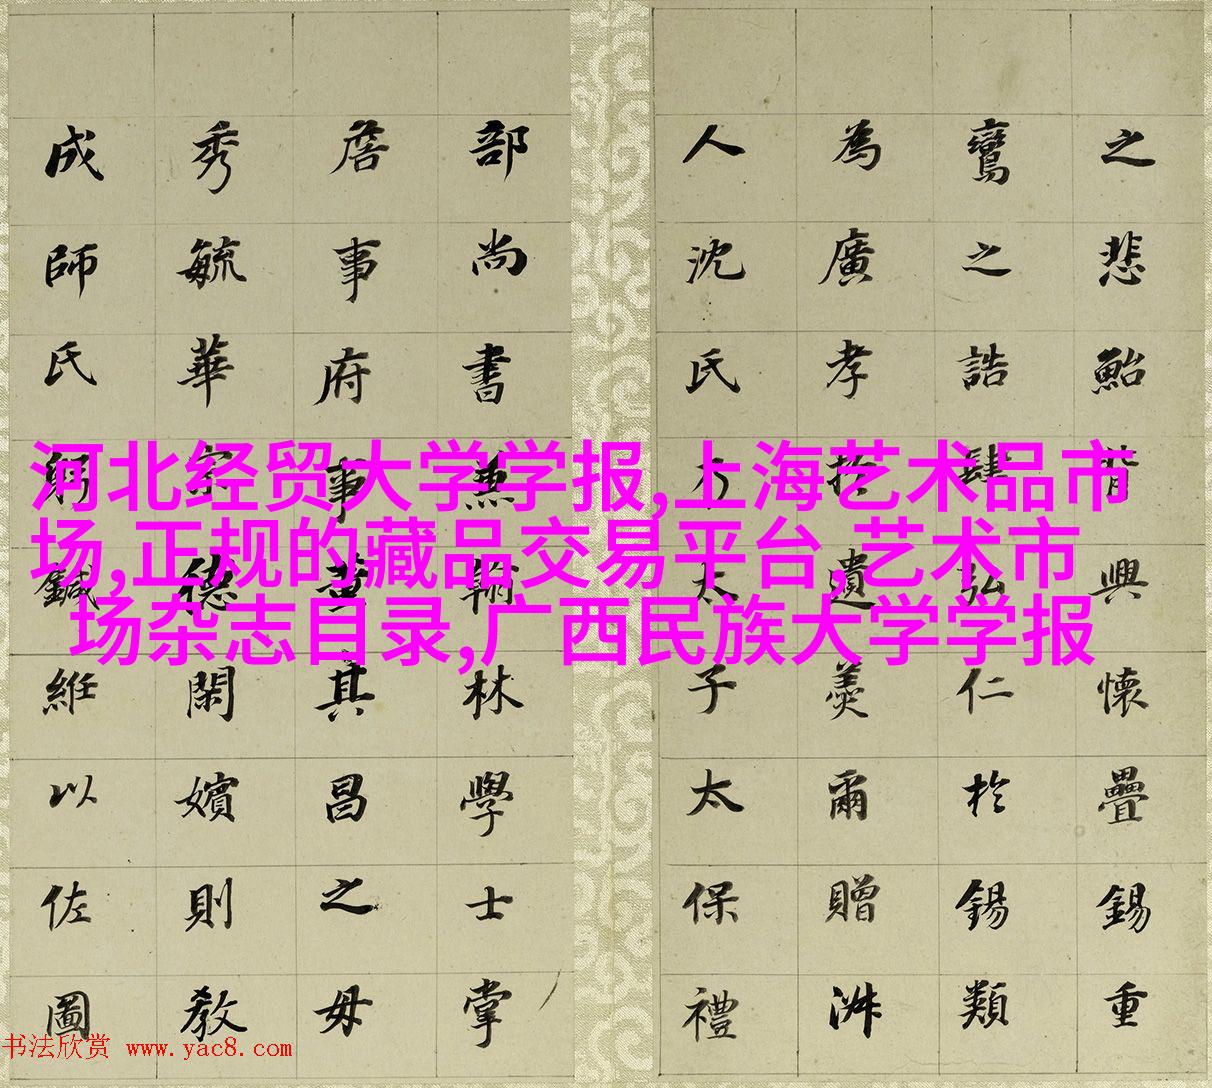 之悲鮐背興懷疊錫重
鸞之誥肆弘仁於錫類
為廣孝於遺羹爾贈淑
人沈氏乃太子太保禮
部尚書兼翰林學士掌
詹事府事董其昌之母
秀毓華宗德閑嬪則教
成師氏躬鍼絍以佐圖
河北经贸大学学报,上海艺术品市
场,正规的藏品交易平台,艺术市
场杂志目录,广西民族大学学报
书法欣赏 www.yac8.com